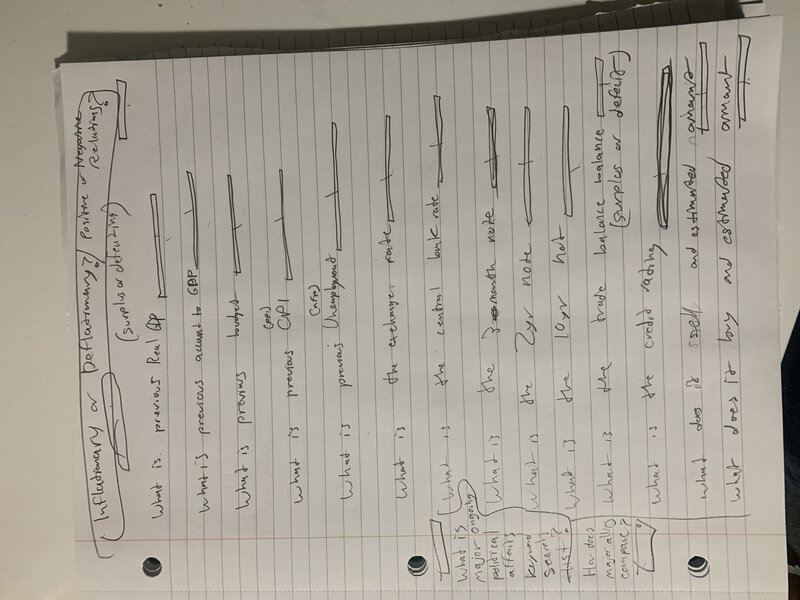 Inflationary or Deflationary? / Positive or Negative
Relations?
(surplus or
What is previous Real GDP
What is previous account to GDP
What is previous budget
(PPI)
What is previous CPI
(NFP)
What is previous Unemployment
What is the exchange rate
What is the central bank rate
What is the 3 month note
What is the 2yr note
What is the 10yr not
What is the trade balance
(Surplus or defecit)
What is the credit rating
What does it sell and estimated amount
What does it buy and estimated amount
What is
major ongoing
political
affairs
keyword
search
list?
How does
major ally
compare?